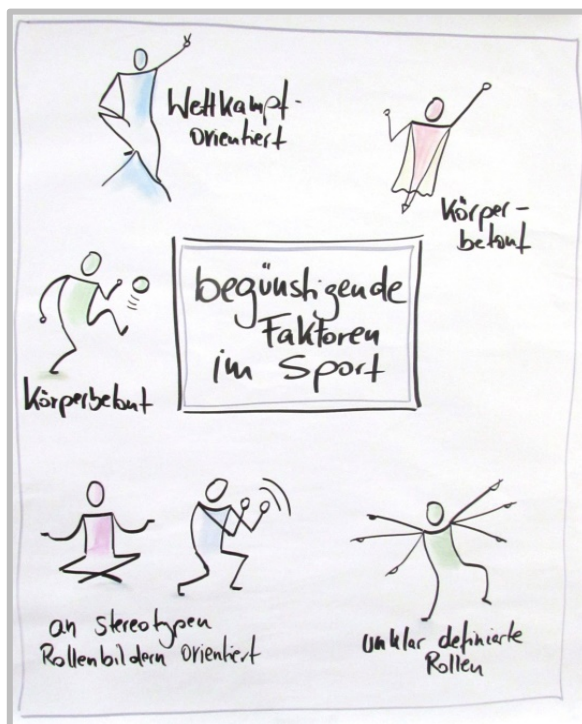 Wettkampf-
orientiert
Körper-
betont
begünstigende
Faktoren
im Sport
Körperbetont
an stereotypen
Rollenbildern orientiert
unklar definierte
Rollen